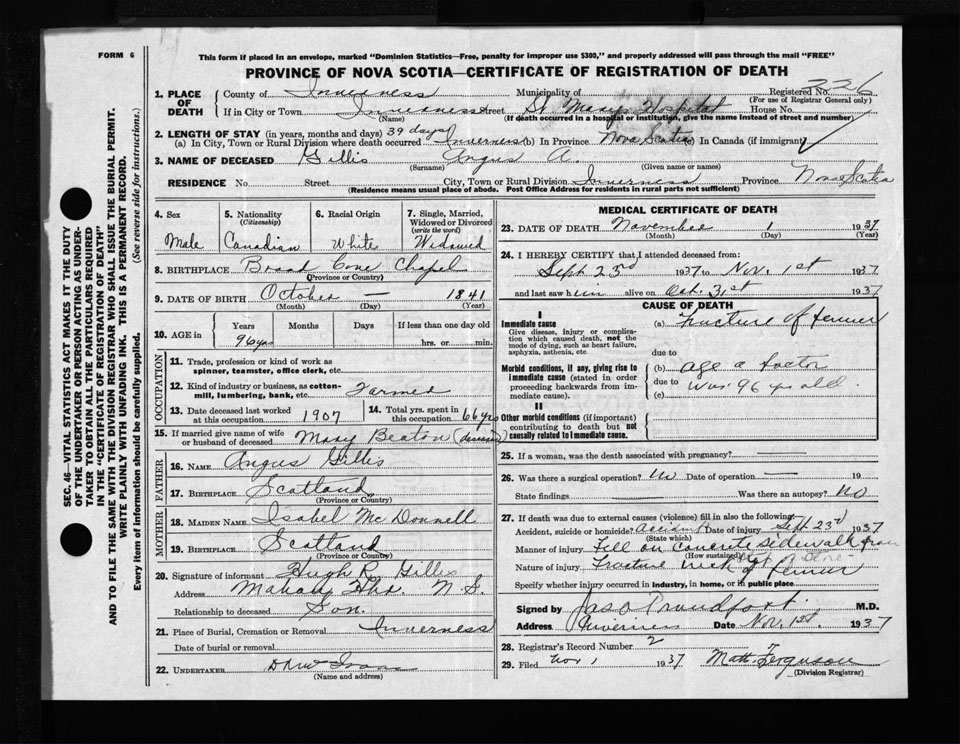 FORM 6
This form if placed in an envelope, marked "Dominion Statistics—Free, penalty for improper use $300," and properly addressed will pass through the mail "FREE"
PROVINCE OF NOVA SCOTIA—CERTIFICATE OF REGISTRATION OF DEATH
1. PLACE OF DEATH County of Inverness Municipality of Registered No. 226
(For use of Registrar General only)
If in City or Town Inverness Street St. Marys Hospital House No.
(Name) (If death occurred in a hospital or institution, give the name instead of street and number)
2. LENGTH OF STAY (in years, months and days) 39 days
(a) In City, Town or Rural Division where death occurred Inverness (b) In Province Nova Scotia (c) In Canada (if immigrant)
3. NAME OF DECEASED Gillis Angus A.
(Surname) (Given name or names)
RESIDENCE No. Street City, Town or Rural Division Inverness Province Nova Scotia
(Residence means usual place of abode. Post Office Address for residents in rural parts not sufficient)
4. Sex Male
5. Nationality (Citizenship) Canadian
6. Racial Origin White
7. Single, Married, Widowed or Divorced (write the word) Widowed
8. BIRTHPLACE Broad Cove Chapel
(Province or Country)
9. DATE OF BIRTH October — 1841
(Month) (Day) (Year)
10. AGE in Years Months Days If less than one day old
96 yrs hrs. or min.
OCCUPATION
11. Trade, profession or kind of work as spinner, teamster, office clerk, etc.
12. Kind of industry or business, as cotton-mill, lumbering, bank, etc. Farmer
13. Date deceased last worked at this occupation 1907
14. Total yrs. spent in this occupation 66 yrs
15. If married give name of wife or husband of deceased Mary Beaton
FATHER
16. NAME Angus Gillis
17. BIRTHPLACE Scotland
(Province or Country)
MOTHER
18. MAIDEN NAME Isabel McDonnell
19. BIRTHPLACE Scotland
(Province or Country)
20. Signature of informant Hugh R. Gillis
Address Mabou N.S.
Relationship to deceased Son.
21. Place of Burial, Cremation or Removal Inverness
Date of burial or removal
22. UNDERTAKER
(Name and address)
MEDICAL CERTIFICATE OF DEATH
23. DATE OF DEATH November 1 1937
(Month) (Day) (Year)
24. I HEREBY CERTIFY that I attended deceased from:
Sept 23rd 1937 to Nov. 1st 1937
and last saw him alive on Oct. 31st 1937
CAUSE OF DEATH
I
Immediate cause (a) Fracture of femur
Give disease, injury or complication which caused death, not the mode of dying, such as heart failure, asphyxia, asthenia, etc.
due to
Morbid conditions, if any, giving rise to immediate cause (stated in order proceeding backwards from immediate cause).
(b) age a factor
due to was 96 yrs old.
(c)
II
Other morbid conditions (if important) contributing to death but not causally related to immediate cause.
25. If a woman, was the death associated with pregnancy? —
26. Was there a surgical operation? No Date of operation — 19
State findings — Was there an autopsy? No
27. If death was due to external causes (violence) fill in also the following:
Accident, suicide or homicide? Accident Date of injury Sept 23d 1937
(State which)
Manner of injury Fell on concrete sidewalk
(How sustained)
Nature of injury Fracture neck of femur
Specify whether injury occurred in industry, in home, or in public place
Signed by M.D.
Address Inverness Date Nov. 1st. 1937
28. Registrar's Record Number 2
29. Filed Nov 1 1937 Matt. Ferguson
(Division Registrar)
SEC. 46—VITAL STATISTICS ACT MAKES IT THE DUTY
OF THE UNDERTAKER OR PERSON ACTING AS UNDER-
TAKER TO OBTAIN ALL THE PARTICULARS REQUIRED
IN THE "CERTIFICATE OF REGISTRATION OF DEATH"
AND TO FILE THE SAME WITH THE DIVISION REGISTRAR WHO SHALL ISSUE THE BURIAL PERMIT.
WRITE PLAINLY WITH UNFADING INK. THIS IS A PERMANENT RECORD.
Every item of information should be carefully supplied. (See reverse side for instructions.)